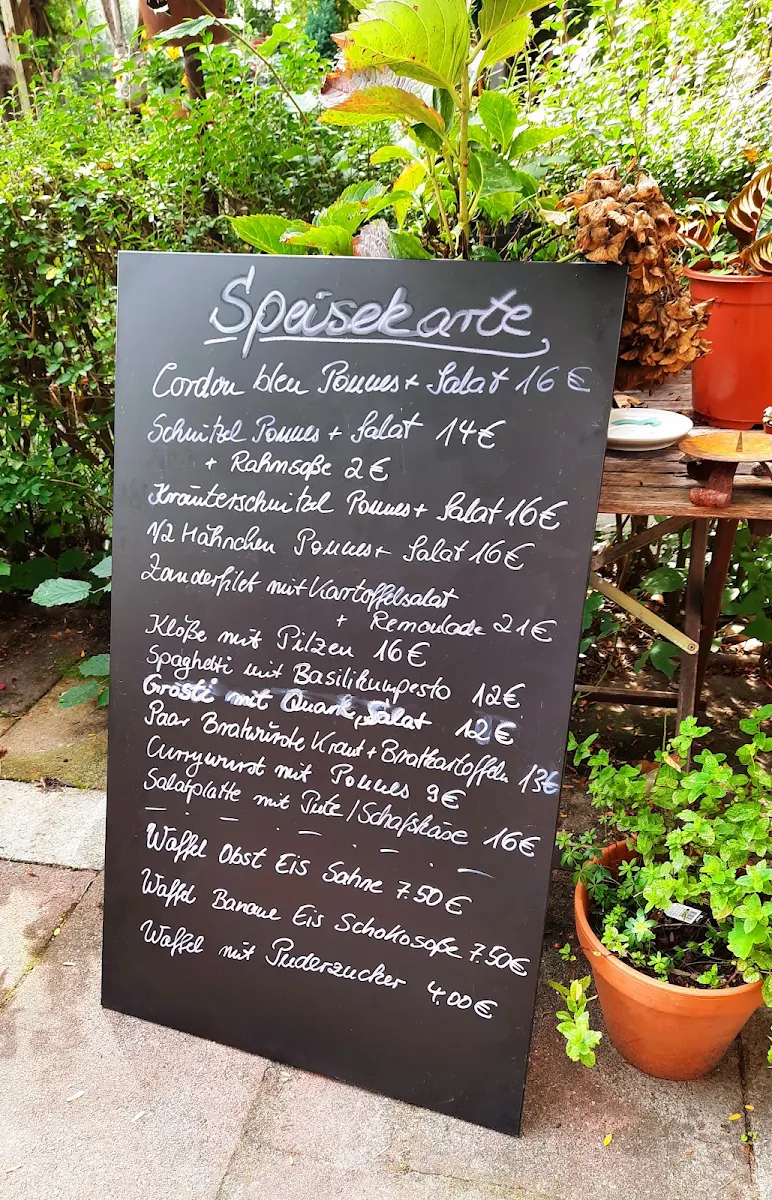 Speisekarte
Cordon bleu Pommes + Salat 16 €
Schnitzel Pommes + Salat 14 €
+ Rahmsoße 2 €
Kräuterschnitzel Pommes + Salat 16 €
1/2 Hähnchen Pommes + Salat 16 €
Zanderfilet mit Kartoffelsalat
+ Remoulade 21 €
Klöße mit Pilzen 16 €
Spaghetti mit Basilikumpesto 12 €
Grösti mit Quark, Salat 12 €
Paar Bratwürste Kraut + Bratkartoffeln 13 €
Currywurst mit Pommes 9 €
Salatplatte mit Pute / Schafskäse 16 €
Waffel Obst Eis Sahne 7.50 €
Waffel Banane Eis Schokosoße 7.50 €
Waffel mit Puderzucker 4.00 €